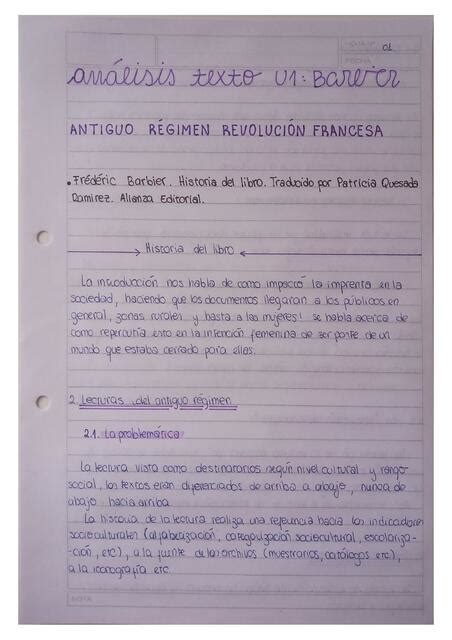 HOJA Nº 01
FECHA
análisis texto U1: Barbier
ANTIGUO RÉGIMEN REVOLUCIÓN FRANCESA
• Frédéric Barbier. Historia del libro. Traducido por Patricia Quesada
Ramirez. Alianza Editorial.
Historia del libro
La introducción nos habla de como impactó la imprenta en la
sociedad, haciendo que los documentos llegaran a los públicos en
general, zonas rurales y hasta a las mujeres! se habla acerca de
como repercutía esto en la intención femenina de ser parte de un
mundo que estaba cerrado para ellas.
2. Lecturas del antiguo régimen
2.1. La problemática
La lectura vista como destinatarios según nivel cultural y rango
social, los textos eran diferenciados de arriba a abajo, nunca de
abajo hacia arriba.
La historia de la lectura realiza una referencia hacia los indicadores
socioculturales (alfabetización, categorización sociocultural, escolariza-
-ción, etc), a la fuente de los archivos (muestrarios, catálogos etc),
a la iconografía etc.
NOTA